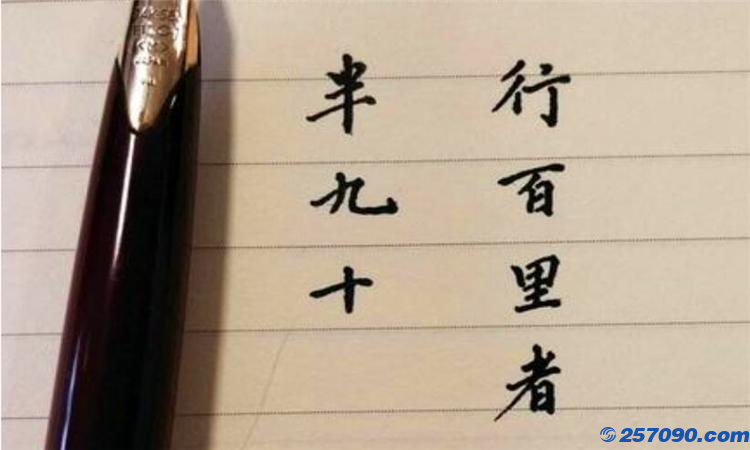 行百里者
半九十
257090.com